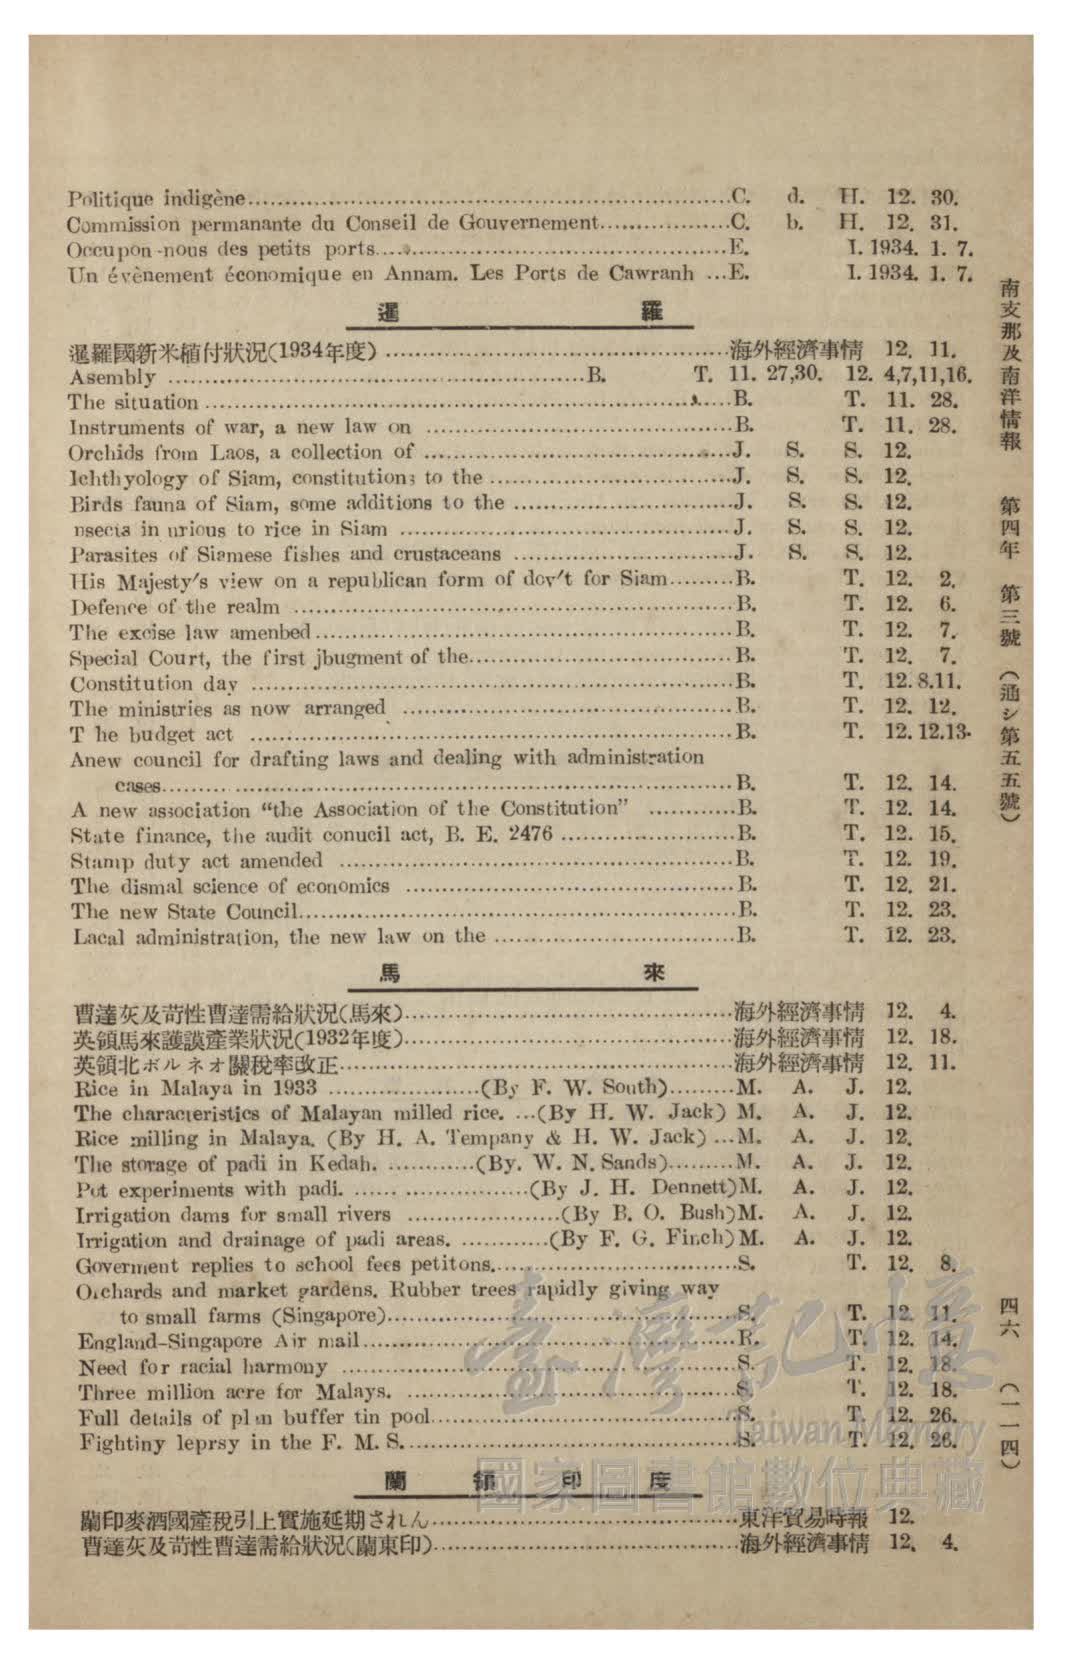 Politique indigène......C. d. H. 12. 30.
Commission permanante du Conseil de Gouvernement......C. b. H. 12. 31.
Occupon-nous des petits ports......E. I. 1934. 1. 7.
Un évènement économique en Annam. Les Ports de Cawranh ...E. I. 1934. 1. 7.
暹羅
暹羅國新米植付狀況(1934年度)......海外經濟事情 12. 11.
Asembly ......B. T. 11. 27,30. 12. 4,7,11,16.
The situation......B. T. 11. 28.
Instruments of war, a new law on ......B. T. 11. 28.
Orchids from Laos, a collection of ......J. S. S. 12.
Ichthyology of Siam, constitutions to the ......J. S. S. 12.
Birds fauna of Siam, some additions to the ......J. S. S. 12.
nsects in urious to rice in Siam ......J. S. S. 12.
Parasites of Siamese fishes and crustaceans ......J. S. S. 12.
His Majesty's view on a republican form of dov't for Siam......B. T. 12. 2.
Defence of the realm ......B. T. 12. 6.
The excise law amenbed......B. T. 12. 7.
Special Court, the first jbugment of the......B. T. 12. 7.
Constitution day ......B. T. 12. 8.11.
The ministries as now arranged ......B. T. 12. 12.
T he budget act ......B. T. 12. 12.13.
Anew council for drafting laws and dealing with administration
cases......B. T. 12. 14.
A new association “the Association of the Constitution” ......B. T. 12. 14.
State finance, the audit conucil act, B. E. 2476 ......B. T. 12. 15.
Stamp duty act amended ......B. T. 12. 19.
The dismal science of economics ......B. T. 12. 21.
The new State Council......B. T. 12. 23.
Lacal administration, the new law on the ......B. T. 12. 23.
馬來
曹達灰及苛性曹達需給狀況(馬來)......海外經濟事情 12. 4.
英領馬來護謨產業狀況(1932年度)......海外經濟事情 12. 18.
英領北ボルネオ關稅率改正......海外經濟事情 12. 11.
Rice in Malaya in 1933 ......(By F. W. South)......M. A. J. 12.
The characteristics of Malayan milled rice. ...(By H. W. Jack) M. A. J. 12.
Rice milling in Malaya. (By H. A. Tempany & H. W. Jack) ...M. A. J. 12.
The storage of padi in Kedah. ......(By. W. N. Sands)......M. A. J. 12.
Pot experiments with padi. ......(By J. H. Dennett)M. A. J. 12.
Irrigation dams for small rivers ......(By B. O. Bush)M. A. J. 12.
Irrigation and drainage of padi areas. ......(By F. G. Finch)M. A. J. 12.
Goverment replies to school fees petitons......S. T. 12. 8.
Orchards and market gardens. Rubber trees rapidly giving way
to small farms (Singapore)......S. T. 12. 11.
England-Singapore Air mail......R. T. 12. 14.
Need for racial harmony ......S. T. 12. 18.
Three million acre for Malays. ......S. T. 12. 18.
Full details of plan buffer tin pool......S. T. 12. 26.
Fightiny leprsy in the F. M. S.......S. T. 12. 26.
蘭領印度
蘭印麥酒國產稅引上實施延期されん......東洋貿易時報 12.
曹達灰及苛性曹達需給狀況(蘭東印)......海外經濟事情 12. 4.
南支那及南洋情報 第四年 第三號 (通シ第五五號)
四六 (一一四)
臺灣記憶
Taiwan Memory
國家圖書館數位典藏